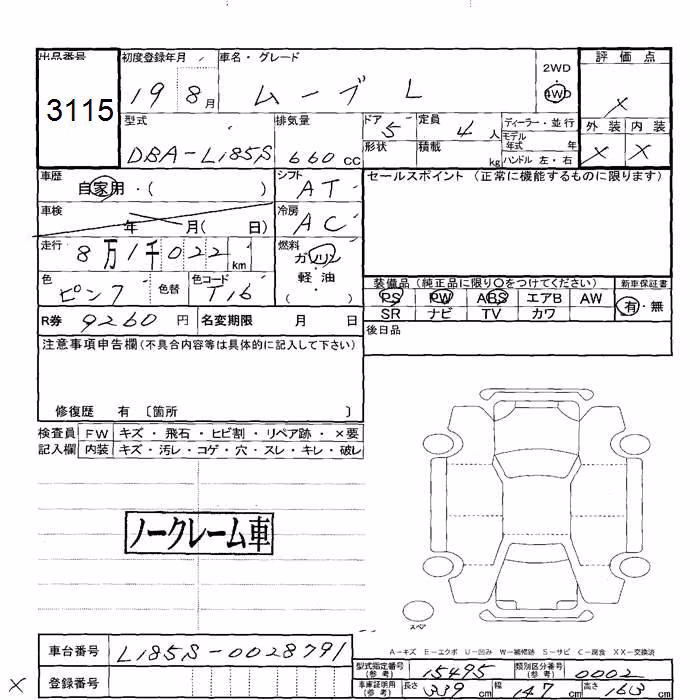 出品番号 初度登録年月 車名・グレード 評価点
3115 19 8月 ムーブ L 2WD 4WD ×
型式 排気量 ドア 5 定員 4人 ディーラー・並行 外装 内装
モデル年式 年
DBA-L185S 660cc 形状 積載 kg ハンドル 左・右 × ×
車歴 自家用・( ) シフト AT セールスポイント (正常に機能するものに限ります)
車検 年 月( 日) 冷房 AC
走行 8万1千022km 燃料 ガソリン
軽・油
( )
色 ピンク 色替 色コード T16 装備品 (純正品に限り○をつけてください) 新車保証書
PS PW ABS エアB AW 有・無
R券 9260円 名変期限 月 日 SR ナビ TV カワ
注意事項申告欄(不具合内容等は具体的に記入して下さい) 後日品
修復歴 有 〔箇所 〕
検査員 FW キズ・飛石・ヒビ割・リペア跡・×要
記入欄 内装 キズ・汚レ・コゲ・穴・スレ・キレ・破レ
ノークレーム車
スペア
A-キズ E-エクボ U-凹み W-補修跡 S-サビ C-腐食 XX-交換済
車台番号 L185S-0028791 型式指定番号(参考) 15495 類別区分番号(参考) 0002
× 登録番号 車庫証明用(参考) 長さ 339cm 幅 147cm 高さ 163cm